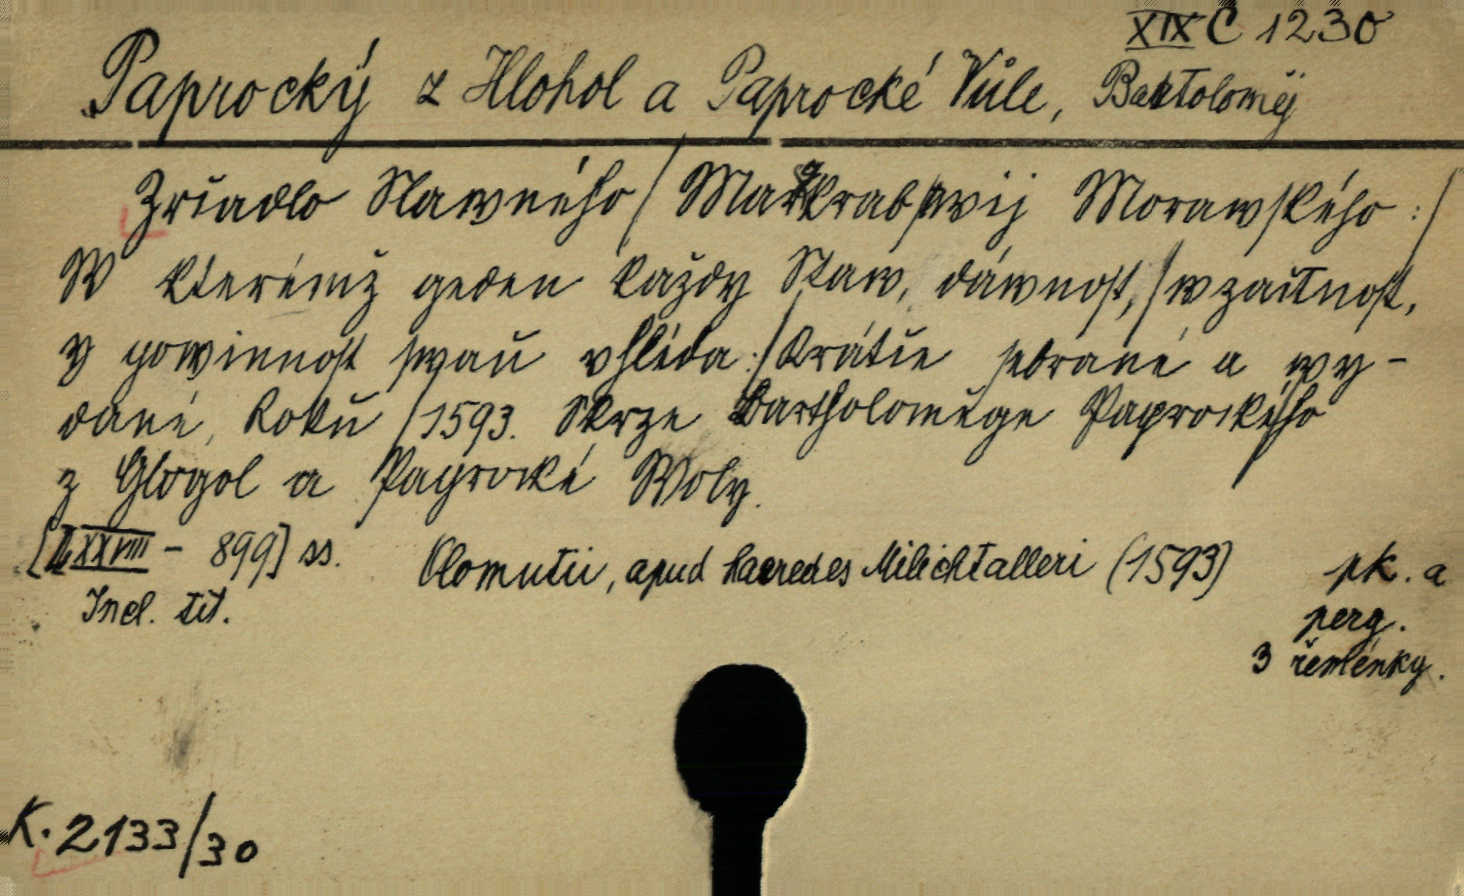 XIX C 1230
Paprocký z Hlohol a Paprocké Vůle, Bartoloměj
Zrčadlo Slawného / Margkrabstwij Morawského : /
W kterémž geden každy Staw, dáwnost, / wzáctnost,
y powinnost swau vhléda : / Krátce sebrané a wy-
dané, Roku / 1593. Skrze Bartholoměge Paprockého
z Glogol a Paprocké Woly.
[XXVIII - 899] ss. Olomutii, apud haeredes Milichtalleri (1593) pk. a
Incl. tit. perg.
3 řeménky.
K. 2133/30